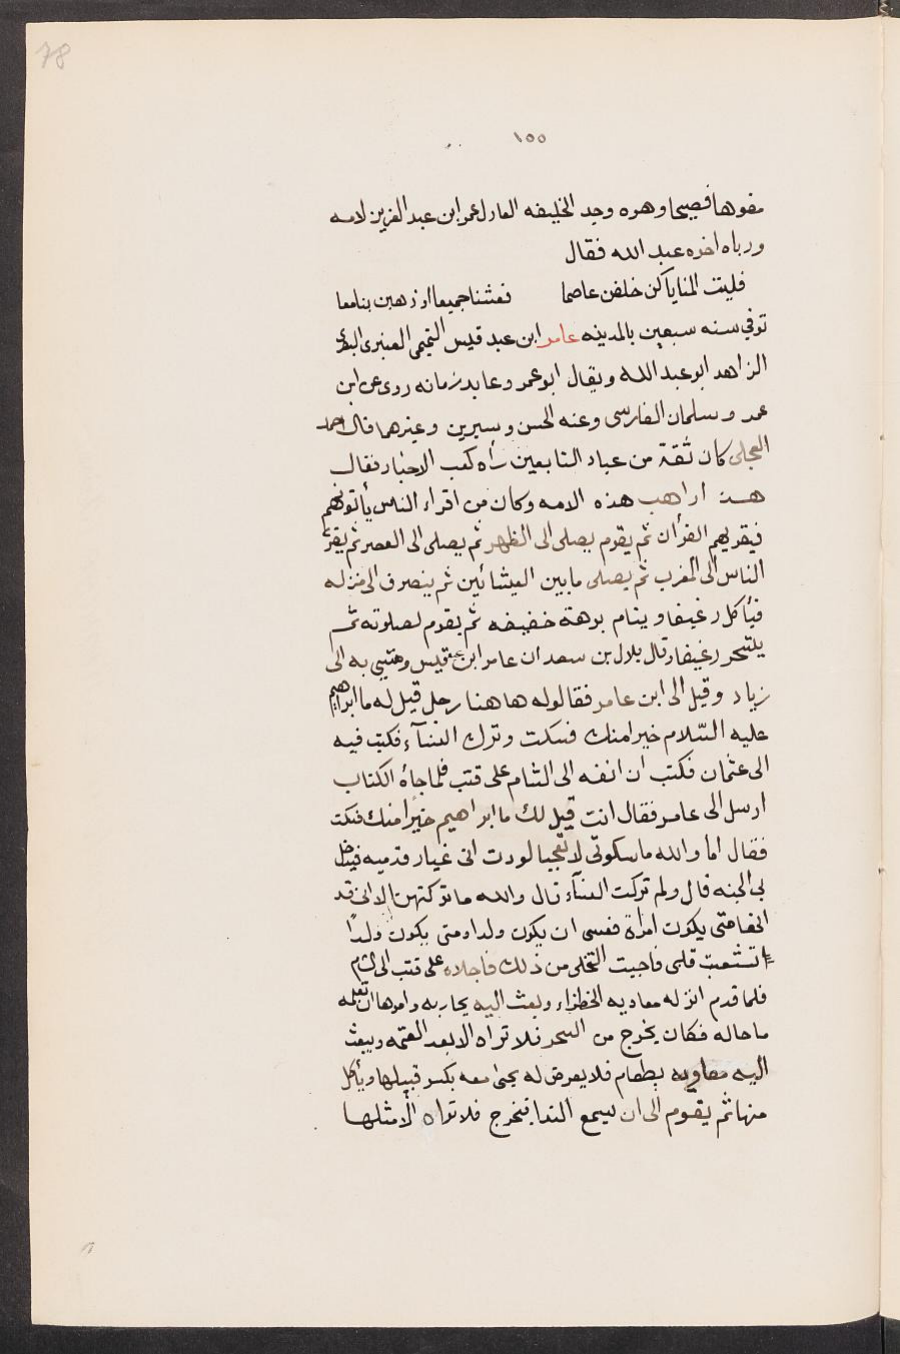 78
١٥٥
مفوها فصيحا وهو وجد الخليفه العادل عمر ابن عبد العزيز لامه
ورباه اخوه عبد الله فقال
فليت المنايا كن خلفن عاصما فعشنا جميعا او ذهبن بنا معا
توفي سنه سبعين بالمدينه عامر ابن عبد قيس التميمى العنبرى البصرى
الزاهد ابو عبد الله ويقال ابو عمر وعابد زمانه روى عن ابن
عمر وسلمان الفارسى وعنه الحسن وسيرين وغيرهما قال احمد
العجلى كان ثقة من عباد التابعين رأه كعب الاحبار فقال
هذا راهب هذه الامه وكان من اقراء الناس يأتونهم
فيقريهم القرأن ثم يقوم يصلى الى الظهر ثم يصلى الى العصر ثم يقرئ
الناس الى المغرب ثم يصلى ما بين العيشائين ثم ينصرف الى منزله
فيأكل رغيفا وينام بوهة خفيفه ثم يقوم لصلوته ثم
يتسحر رغيفا وقال بلال بن سعد ان عامر ابن عبد قيس وشى به الى
زياد وقيل الى ابن عامر فقالوله هاهنا رجل قيل له ما ابراهيم
عليه السّلام خيرا منك فسكت وترك النسآء فكتب فيه
الى عثمان فكتب ان انفه الى الشام على قتب فلما جاه الكتاب
ارسل الى عامر فقال انت قيل لك ما ابراهيم خيرا منك فسكت
فقال اما والله ما سكوتى لا تعجبا لوددت انى غبار قدميه فيدخل
بى الجنه قال ولم تركت النسآء قال والله ما تركتهن الا انى قد
متى يكون امراة فعسى ان يكون ولدا ومتى يكون ولدًا
تشعب قلبى فاحببت التخلى من ذلك فاجلاه على قتب الى الشام
فلما قدم انزله معاويه الخظراء وبعث اليه بجاريه وامرها ان تعلمه
ما حاله فكان يخرج من السحر فلا تراه الا بعد العتمه ويبعث
اليه معاويه بطعام فلا يعرض له يجئ معه بكسر فيبلها ويأكل
منها ثم يقوم الى ان يسمع الندا فيخرج فلا تراه الا مثلها